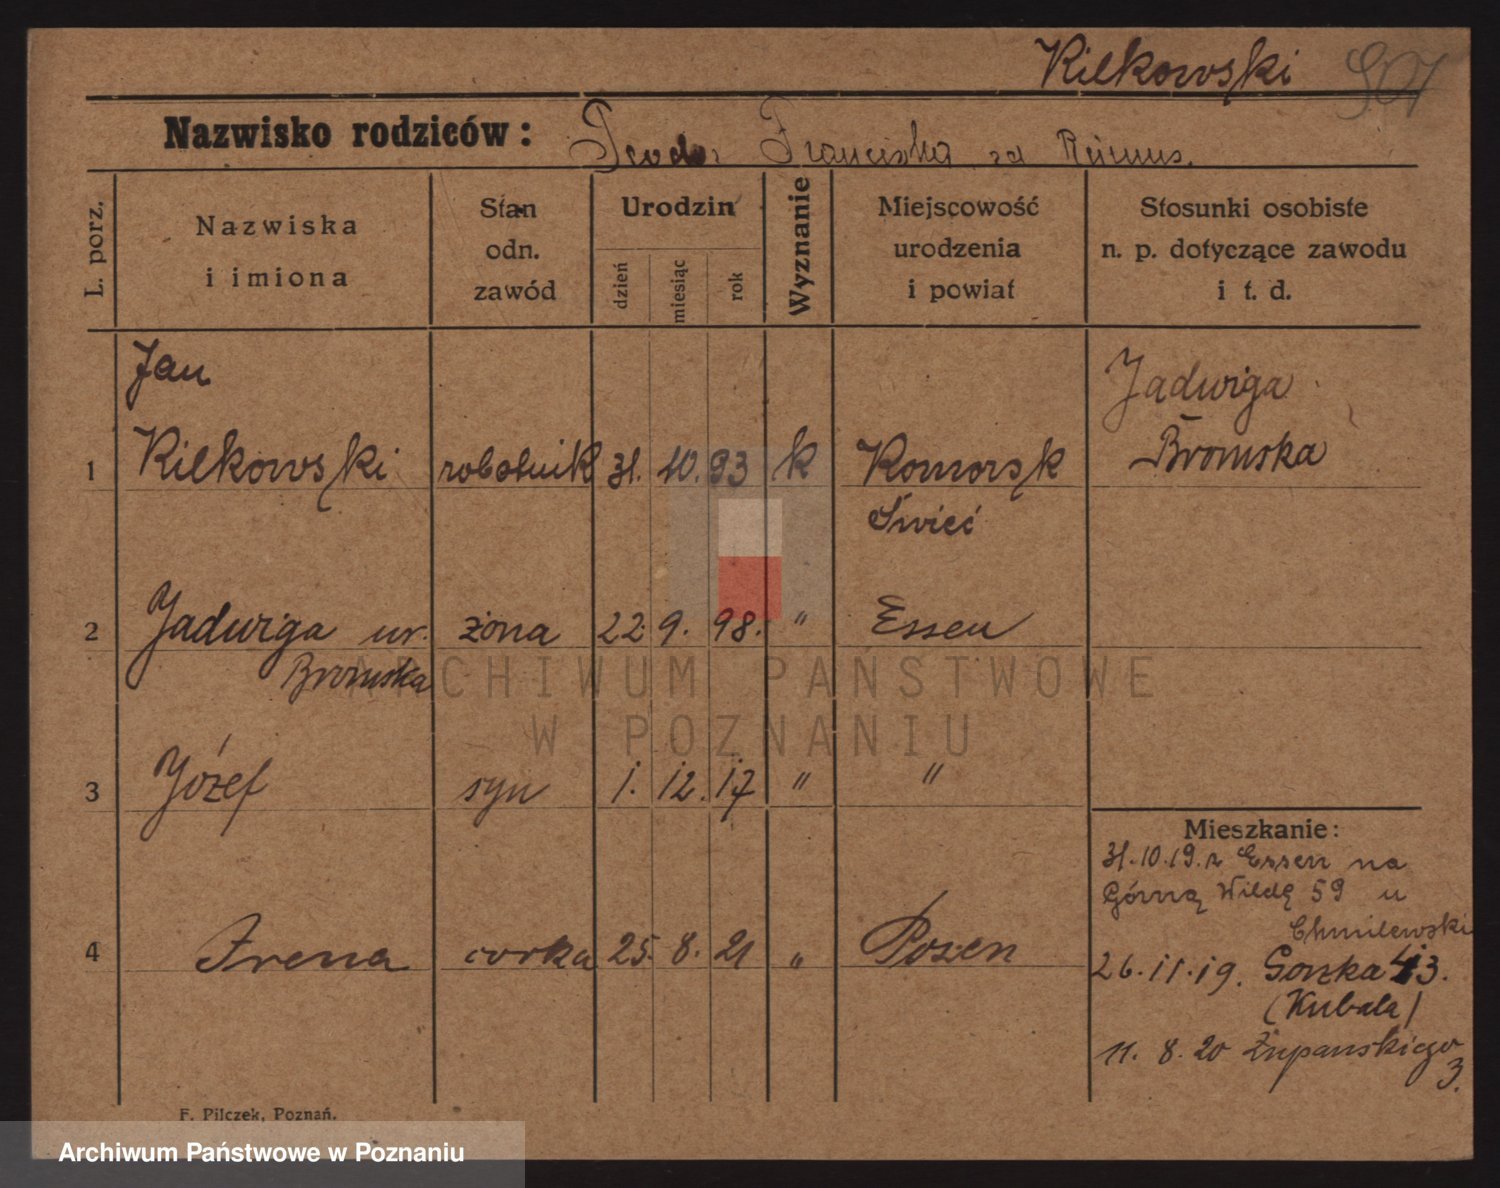 Kilkowski 507
Nazwisko rodziców: Teodor Franciszka zd
L. porz.
Nazwiska
i imiona
Stan
odn.
zawód
Urodzin
dzień
miesiąc
rok
Wyznanie
Miejscowość
urodzenia
i powiat
Stosunki osobiste
n. p. dotyczące zawodu
i t. d.
Jan
1 Kilkowski robotnik 31. 10. 93 k Komorsk
Świeć
Jadwiga
Bromska
2 Jadwiga ur. żona 22. 9. 98. " Essen
Bromska
3 Józef syn 1. 12. 17 " "
4 Irena corka 25. 8. 21 " Posen
Mieszkanie:
31.10.19. z Essen na
Górną Wildę 59 u
Chmilewski
26.11.19. Gorzka 13.
(Kubala)
11. 8. 20 Żupanskiego
3.
F. Pilczek, Poznań.
ARCHIWUM PAŃSTWOWE
W POZNANIU
Archiwum Państwowe w Poznaniu